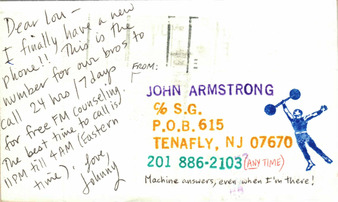 Dear Lou –
I finally have a new
phone!! This is the
number for our bros to
call 24 hrs/7days
for free FM counseling.
The best time to call is
11PM till 4AM (Eastern
time). Love,
Johnny
FROM:
JOHN ARMSTRONG
℅ S.G.
P.O.B. 615
TENAFLY, NJ 07670
201 886-2103 (ANY TIME)
Machine answers, even when I'm there!